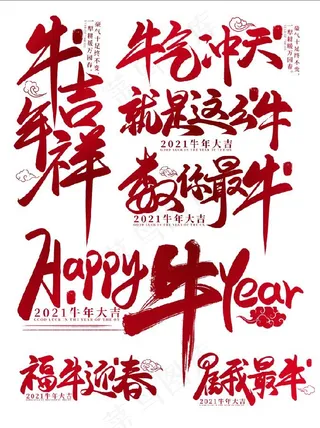 牛年吉祥
豪气十足终不变
一犁耕暖万园春
牛气冲天
就是这么牛
2021牛年大吉
数你最牛
2021牛年大吉
Happy 牛 Year
2021牛年大吉
GOOD LUCK IN THE YEAR OF THE OX
福牛迎春
2021牛年大吉
属我最牛
2021牛年大吉